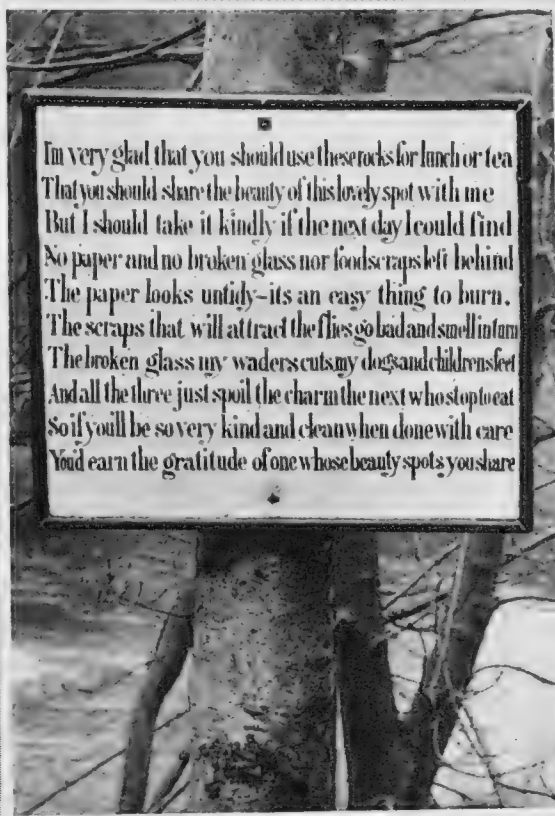 Im very glad that you should use these rocks for lunch or tea
That you should share the beauty of this lovely spot with me
But I should take it kindly if the next day I could find
No paper and no broken glass nor foodscraps left behind
The paper looks untidy-its an easy thing to burn.
The scraps that will attract the flies go bad and smell in turn
The broken glass my waders cuts, my dogs and childrens feet
And all the three just spoil the charm the next who stop to eat
So if youll be so very kind and clean when done with care
Youd earn the gratitude of one whose beauty spots you share